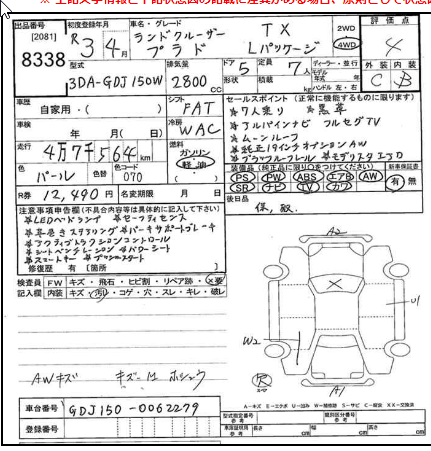 出品番号
[2081]
8338
初度登録年月
R3年4月
車名・グレード
ランドクルーザー
プラド
TX
Lパッケージ
2WD
4WD
評価点
4
外装 内装
C B
型式
3DA-GDJ150W
排気量
2800 CC
ドア 5
定員 7人
形状
積載 kg
ディーラー・並行
モデル年式 年
ハンドル 左・右
車歴
自家用・( )
シフト
FAT
車検
年 月( 日)
冷房
WAC
走行
4万7千564 km
燃料
ガソリン
軽・油
色
パール
色替
カラーNo
070
R券 12,490円
名変期限 月 日
セールスポイント(正常に機能するものに限ります)
*7人乗り *黒革
*アルパインナビ フルセグTV
*ムーンルーフ
*純正19インチオプションAW
*ブラックルーフレール *モデリスタエアロ
装備品(純正品に限り○をつけてください)
PS PW ABS エアB AW
SR ナビ TV カワ
新車保証書
有 無
後日品
保、取、
注意事項申告欄(不具合内容等は具体的に記入して下さい)
*LEDヘッドランプ *セーフティセンス
*本巻きステアリング *パーキサポートブレーキ
*アクティブトラクションコントロール
*シートベンチレーション *パワーシート
*スマートキー *プッシュスタート
修復歴 有 [箇所 ]
検査員記入欄
FW キズ・飛石・ヒビ割・リペア跡・X要
内装 キズ・汚れ・コゲ・穴・スレ・キレ・破レ
AWキズ キズ・凹 ホシュウ
A2
X
U1
W2
A1
R
スペア
A-キズ E-エクボ U-凹み W-補修跡 S-サビ C-腐食 X-要交換 XX-交換済
車台番号 GDJ150-0062279
登録番号
型式指定番号
類別区分番号
長さ cm
幅 cm
高さ cm